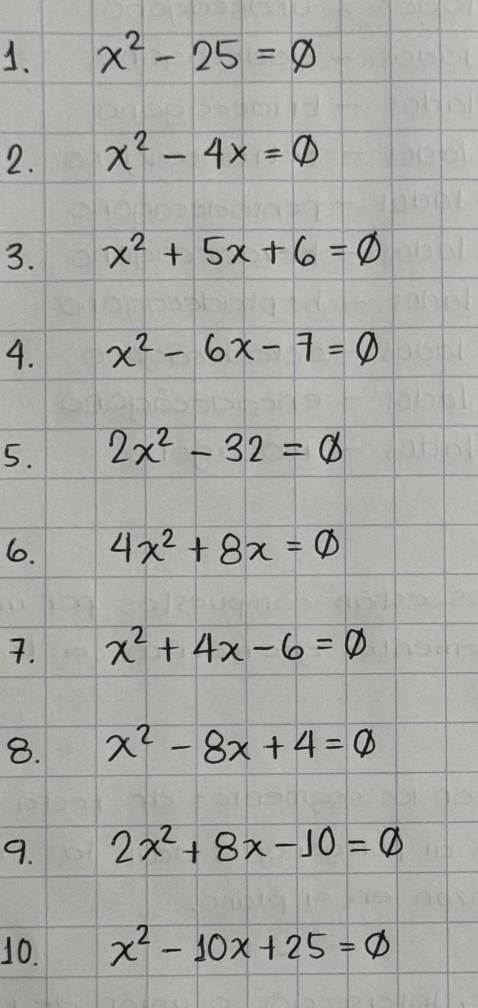 1. x² - 25 = ∅
2. x² - 4x = ∅
3. x² + 5x + 6 = ∅
4. x² - 6x - 7 = ∅
5. 2x² - 32 = ∅
6. 4x² + 8x = ∅
7. x² + 4x - 6 = ∅
8. x² - 8x + 4 = ∅
9. 2x² + 8x - 10 = ∅
10. x² - 10x + 25 = ∅